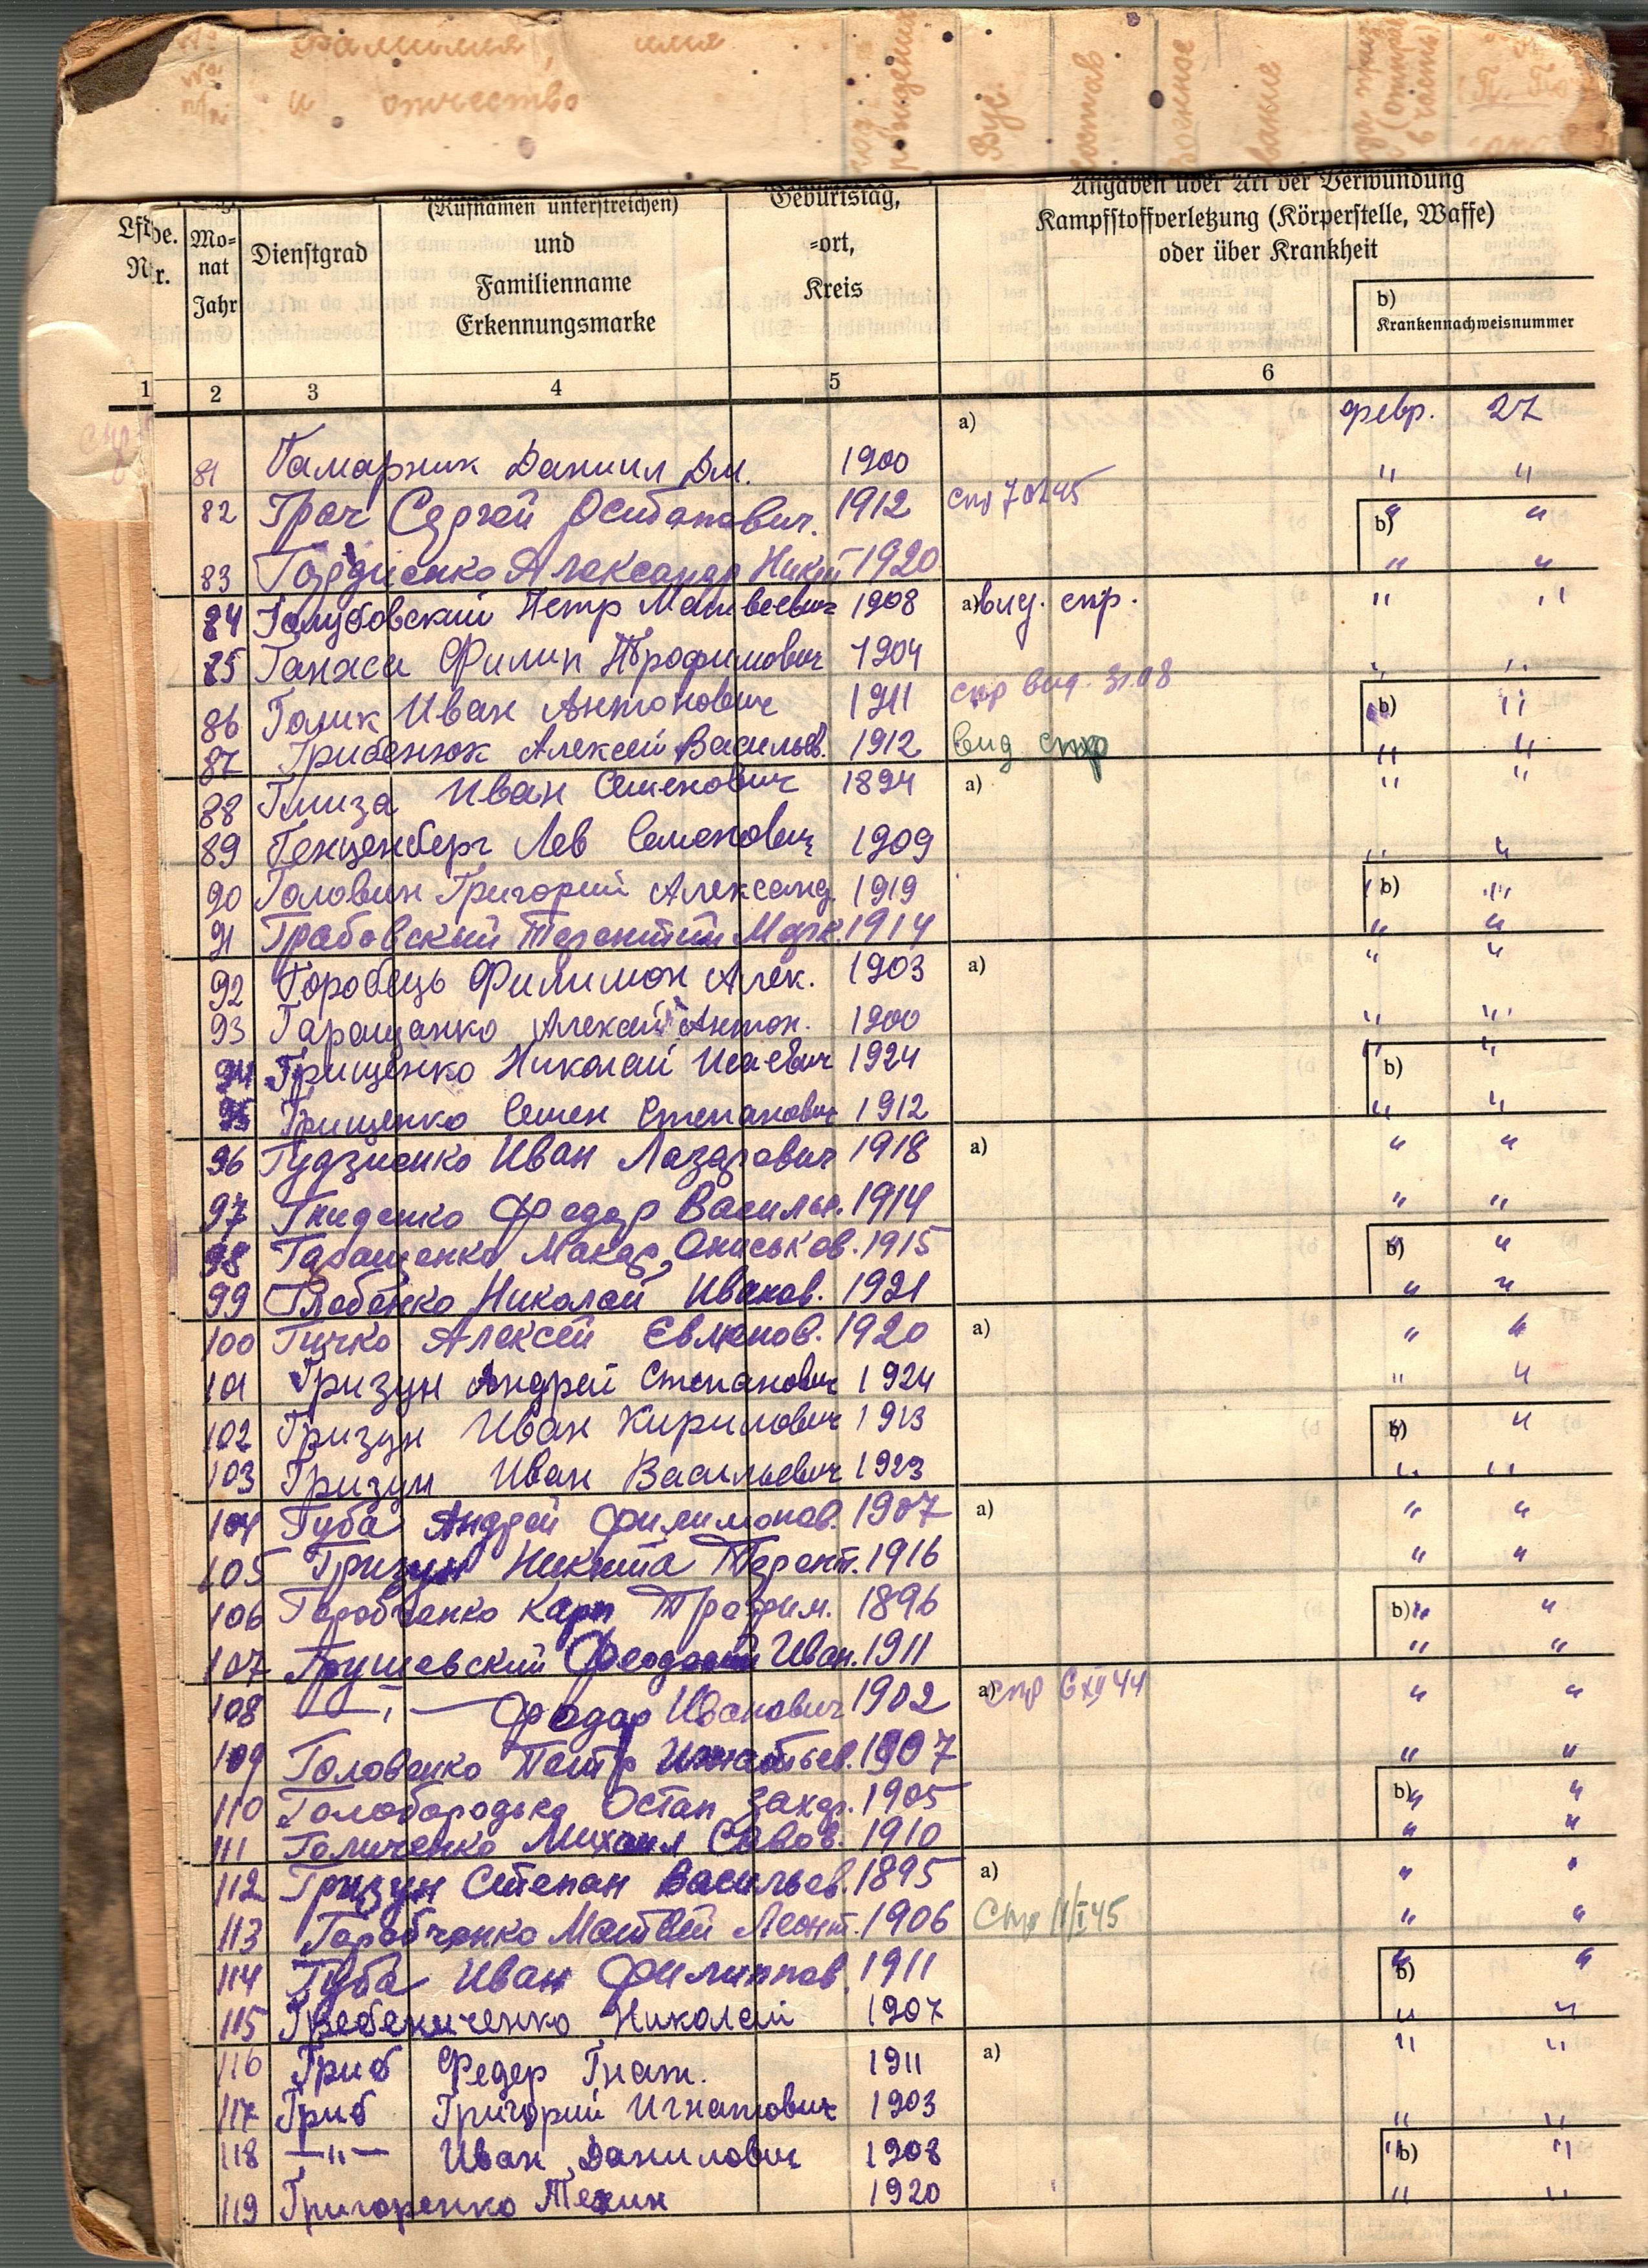 № фамилия, имя
№ п/п и отчество
год рождения
Вус.
состав
Военное
звание
Angaben über Art der Verwundung
(Rufnamen unterstreichen) Geburtstag,
Kampfstoffverletzung (Körperstelle, Waffe)
Lfde. Mo- Dienstgrad und =ort,
oder über Krankheit
Nr. nat Familienname Kreis
Jahr Erkennungsmarke
b)
Krankennachweisnummer
1 2 3 4 5 6
a) февр. 27
81 Гамарник Даниил Дм. 1900 " "
82 Грач Сергей Осипович. 1912 спр 7 b) " "
83 Гордиенко Александр Никит 1920 " "
84 Голубовский Петр Матвеевич 1908 a) вид. спр. " "
85 Гапаса Филип Трофимович 1904 " "
86 Голик Иван Антонович 1911 спр вид. 31.08 b) " "
87 Грибенюк Алексей Васильев. 1912 вид спр " "
88 Глиза Иван Семенович 1894 a) " "
89 Генценберг Лев Семенович 1909 " "
90 Головин Григорий Александ. 1919 b) " "
91 Грабовский Терентий Марк. 1914 " "
92 Горобець Филимон Алек. 1903 a) " "
93 Гаращенко Алексей Антон. 1900 " "
94 Грищенко Николай Исаевич 1924 b) " "
95 Грищенко Семен Степанович 1912 " "
96 Гудзиенко Иван Лазарович 1918 a) " "
97 Гниденко Федор Васильев. 1914 " "
98 Гаращенко МакарОниськов. 1915 b) " "
99 Глебенко Николай Иванов. 1921 " "
100 Гичко Алексей 1920 a) " "
101 Гризун Андрей Степанович 1924 " "
102 Гризун Иван Кирилович 1913 b) " "
103 Гризун Иван Васильевич 1923 " "
104 Губа Андрей Филимонов. 1907 a) " "
105 Гризун Никита Терент. 1916 " "
106 Горобченко Карп Трофим. 1896 b) " "
107 Грушевский Феодосий Иван. 1911 " "
108 — " — Федор Иванович 1902 a) спр 6 XII 44 " "
109 Головенко Петр Игнатьев. 1907 " "
110 Голобородько Остап Захар. 1905 b) " "
111 Голиченко Михаил Савов. 1910 " "
112 Гризун Степан Васильев. 1895 a) " "
113 Горобченко Матвей Леонт. 1906 Спр 11/I 45 " "
114 Губа Иван Филиппов. 1911 b) " "
115 Гребениченко Николай 1907 " "
116 Гриб Федер Гнат. 1911 a) " "
117 Гриб Григорий Игнатович 1903 " "
118 — " — Иван Данилович 1908 b) " "
119 Григоренко 1920 " "